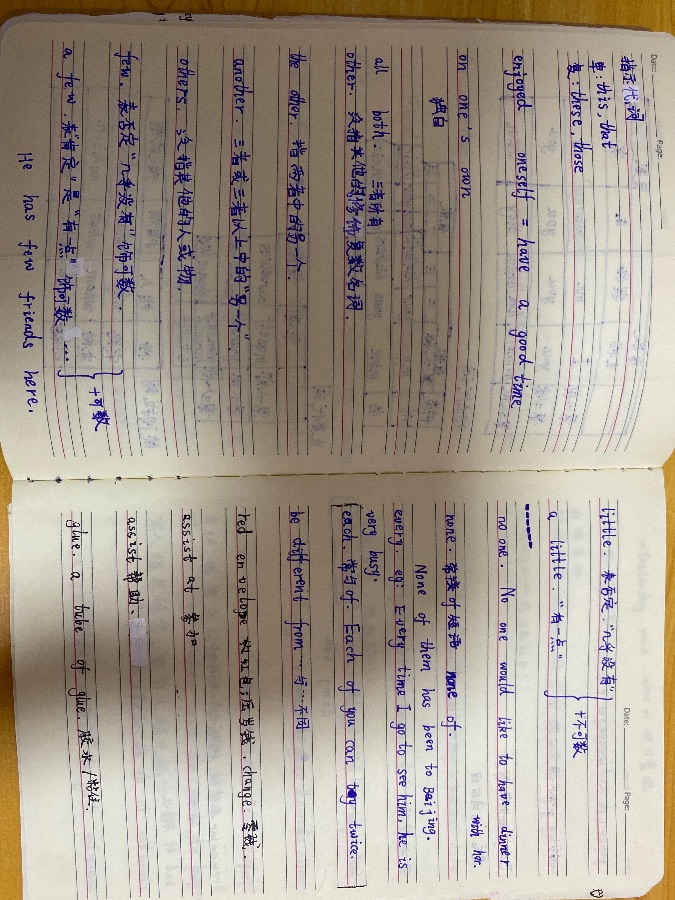 Date: Page:
指示代词
单: this, that
复: these, those
enjoyed oneself = have a good time
on one's own
独自
all both: 三者 所有
other. 泛指其他的修饰复数名词.
the other. 指两者中的另一个.
another. 三者或三者以上中的"另一个"
others. 泛指其他的人或物.
few. 表否定"几乎没有"饰可数.
a few. 表"肯定"是"有一点"饰可数. ...
+可数
He has few friends here.
Date: Page:
little. 表否定."几乎没有"
a little. "有一点"
+不可数
no one. No one would like to have dinner
with her.
none. 常接of短语 none of.
None of them has been to Baijing.
every. eg: Every time I go to see him, he is
very busy.
each. 常与of. Each of you can try twice.
be different from ... 与...不同
red envelope 红包;压岁钱. change. 零钱.
assist at 参加
assist 帮助.
glue. a tube of glue. 胶水/粘住.